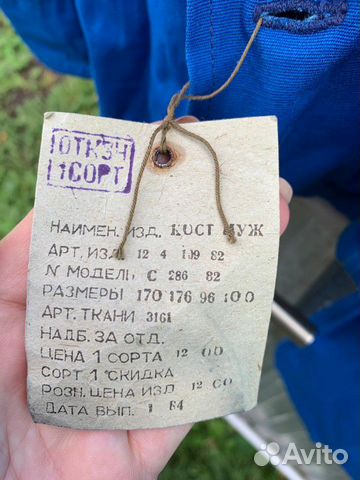 ОТК 34
1 СОРТ
НАИМЕН. ИЗД. КОСТ МУЖ
АРТ. ИЗД. 12 4 109 82
N МОДЕЛЬ С 286 82
РАЗМЕРЫ 170 176 96 100
АРТ. ТКАНИ 3161
НАДБ. ЗА ОТД.
ЦЕНА 1 СОРТА 12 00
СОРТ 1 СКИДКА
РОЗН. ЦЕНА ИЗД 12 00
ДАТА ВЫП. 1 84
Avito